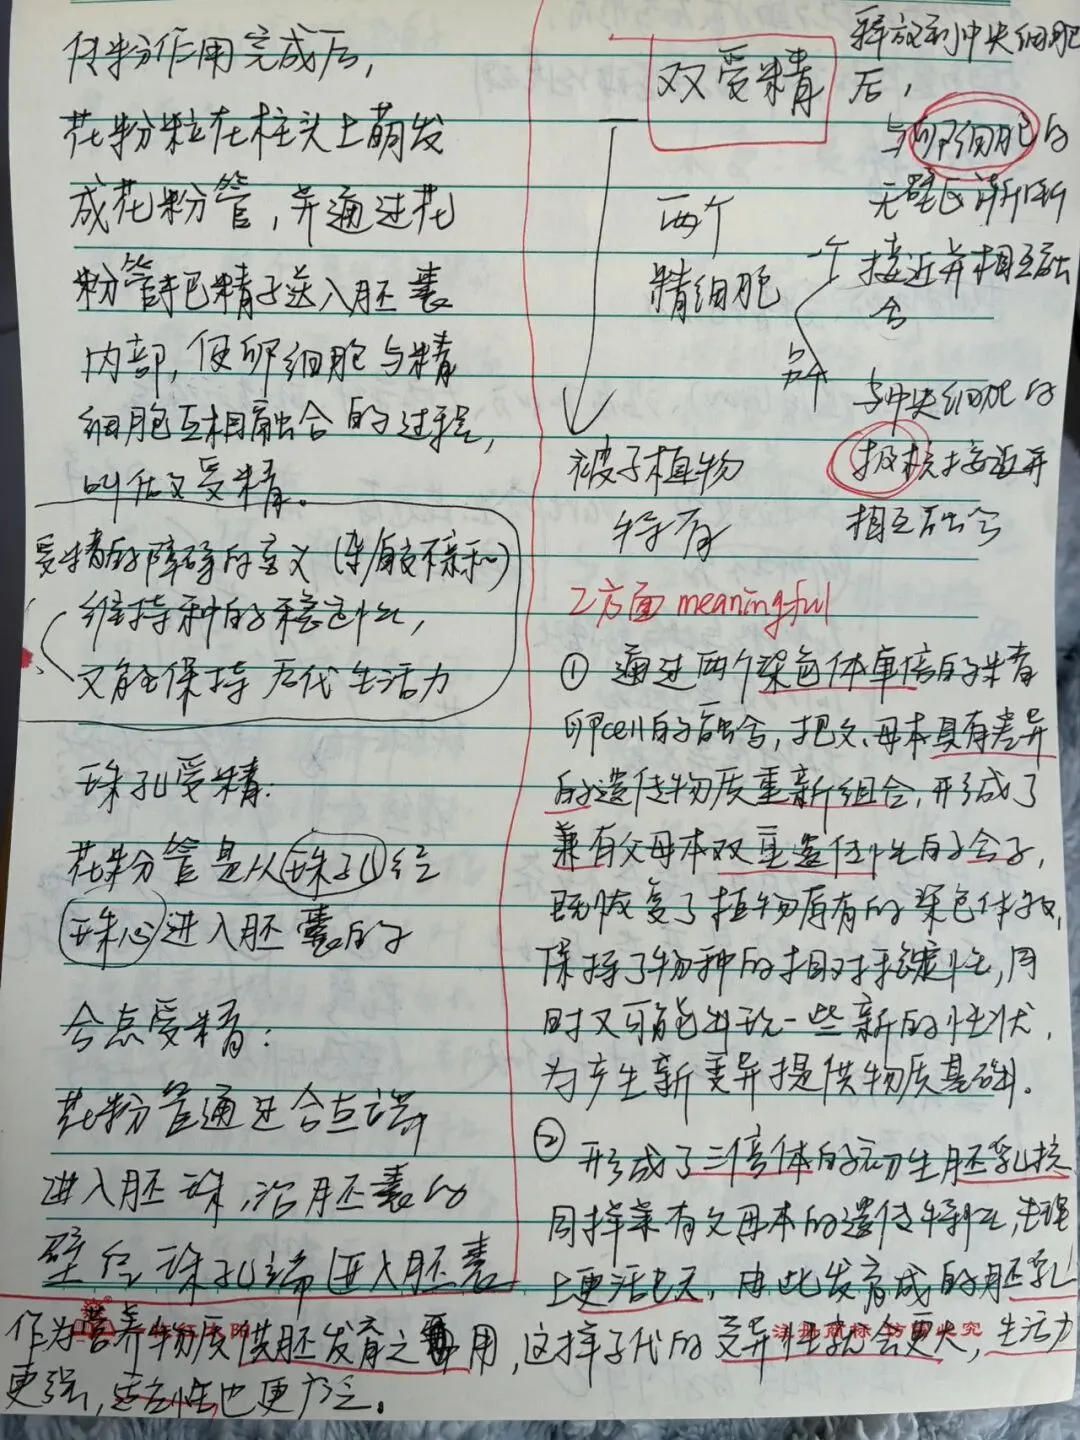 传粉作用完成后,
花粉粒在柱头上萌发
成花粉管,并通过花
粉管把精子送入胚囊
内部,使卵细胞与精
细胞互相融合的过程,
叫作受精。
受精的障碍的意义(杂/自交不亲和)
维持种的稳定性,
又能保持后代生活力
珠孔受精:
花粉管是从珠孔经
珠心进入胚囊的
合点受精:
花粉管通过合点端
进入胚珠,沿胚囊的
壁经珠孔端进入胚囊
双受精
两个
精细胞
被子植物
特有
释放到中央细胞
后,
与卵细胞的
无壁区渐渐
个 接近并相互融
合
另个
与中央细胞的
极核接近并
相互融合
2方面 meaningful
① 通过两个染色体单倍的
卵cell的融合,把父、母本具有差异
的遗传物质重新组合,形成了
兼有父母本双重遗传性的合子,
既恢复了植物原有的染色体数,
保持了物种的相对稳定性,同
时又可能出现一些新的性状,
为产生新变异提供物质基础。
② 形成了三倍体的初生胚乳核
同样兼有父母本的遗传特性,生理
上更活跃,由此发育成的胚乳
作为营养物质供胚发育之用,这样子代的变异性就会更大,生活力
更强,适应性也更广泛。